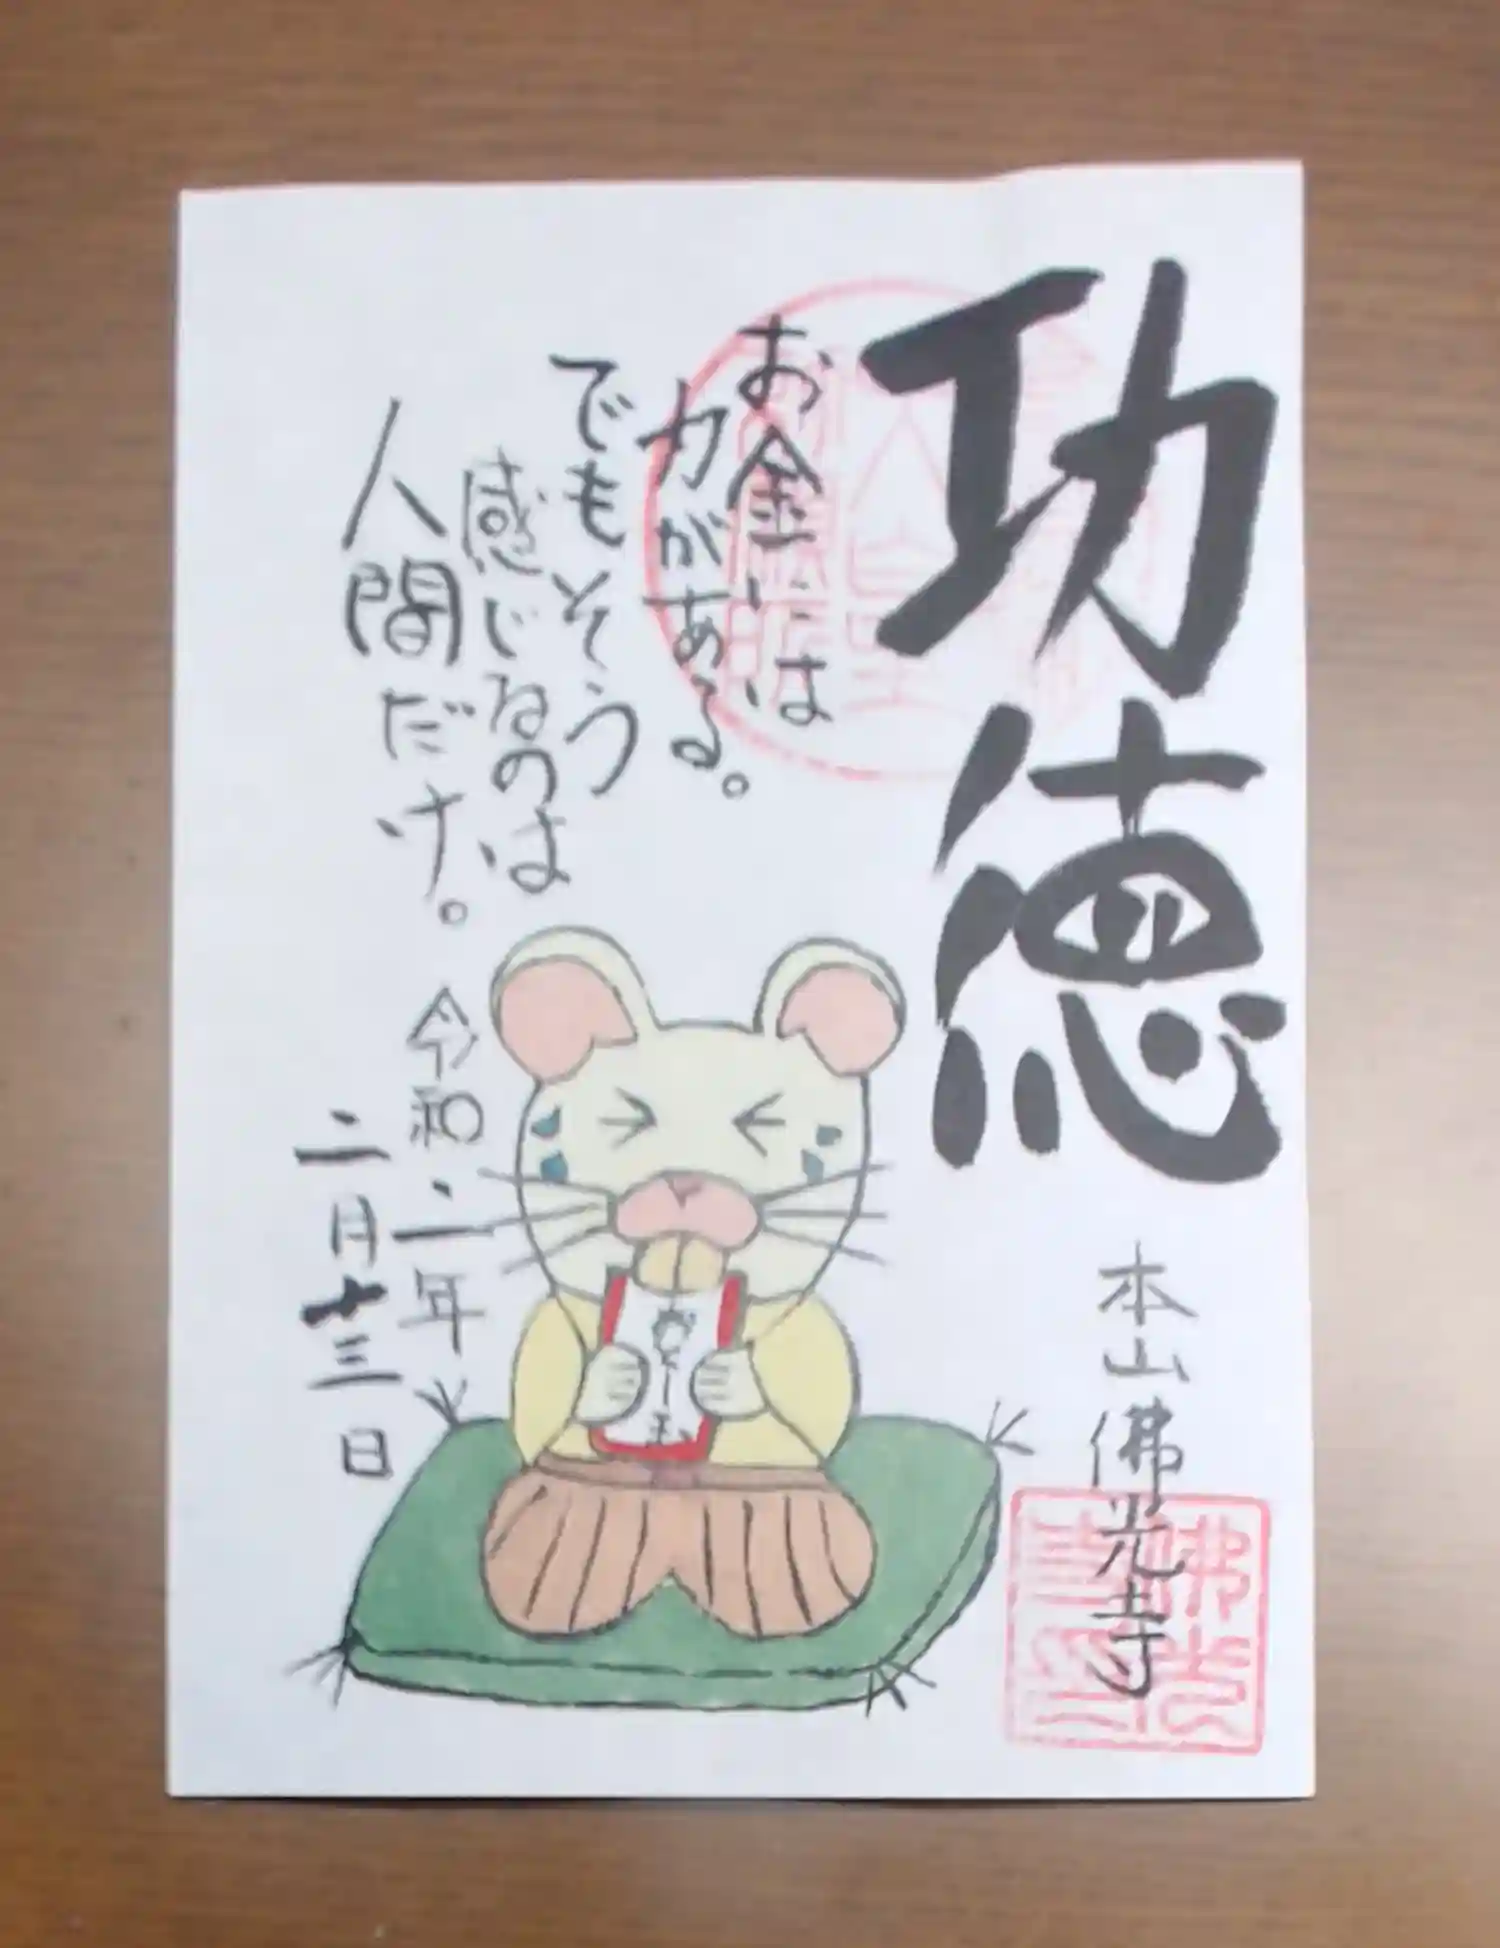 功徳
お金には
力がある。
でもそう
感じるのは
人間だけ。
令和二年
二月十三日
本山佛光寺
おとし玉